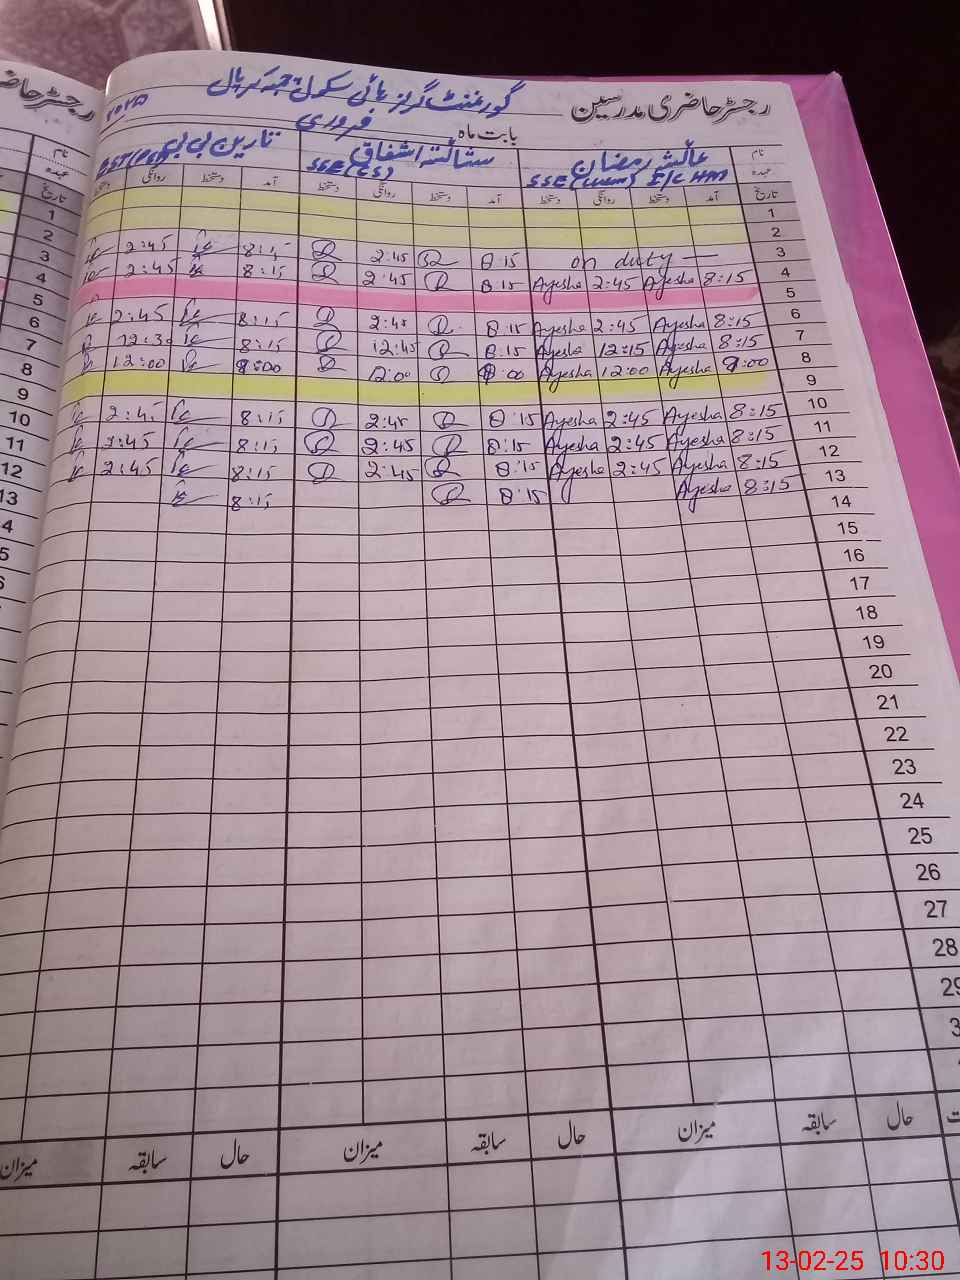 رجسٹر حاضری مدرسین گورنمنٹ گرلز ہائی سکول
بابت ماہ فروری ۲۰۲۵
نام عائشہ رمضان شائستہ اشفاق بی بی
عہدہ SSE E/C HM SSE (CS)
تاریخ آمد دستخط روانگی دستخط آمد دستخط روانگی دستخط آمد دستخط روانگی دستخط
1
2
3 on duty — 8:15 2:45 8:15 2:45
4 8:15 Ayesha 2:45 Ayesha 8:15 2:45 8:15 2:45
5
6 8:15 Ayesha 2:45 Ayesha 8:15 2:45 8:15 2:45
7 8:15 Ayesha 12:15 Ayesha 8:15 12:45 8:15 12:30
8 9:00 Ayesha 12:00 Ayesha 9:00 12:00 9:00 12:00
9
10 8:15 Ayesha 2:45 Ayesha 8:15 2:45 8:15 2:45
11 8:15 Ayesha 2:45 Ayesha 8:15 2:45 8:15 2:45
12 8:15 Ayesha 2:45 Ayesha 8:15 2:45 8:15 2:45
13 8:15 Ayesha 8:15 8:15
14
15
16
17
18
19
20
21
22
23
24
25
26
27
28
حال سابقہ میزان حال سابقہ میزان حال سابقہ میزان
رجسٹر
نام
عہدہ
تاریخ
1
2
3
4
5
6
7
8
9
10
11
12
13
13-02-25 10:30